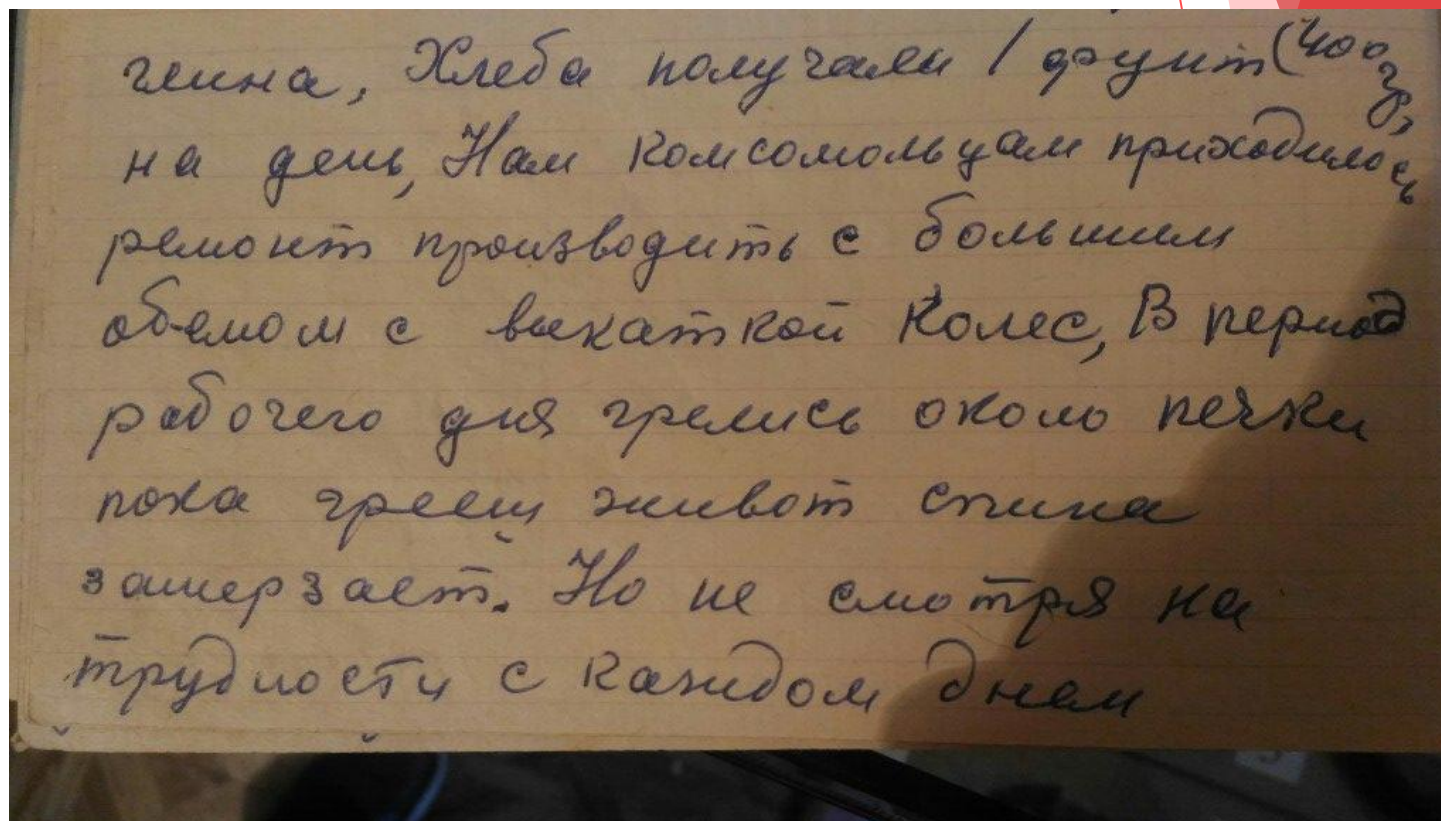 гина, Хлеба получали 1 фунт (400 гр,
на день, Нам комсомольцам приходилось
ремонт производить с большим
обемом с выкаткой колес, В период
рабочего дня грелись около печки
пока греещ живот спина
замерзает. Но не смотря на
трудности с каждом днем